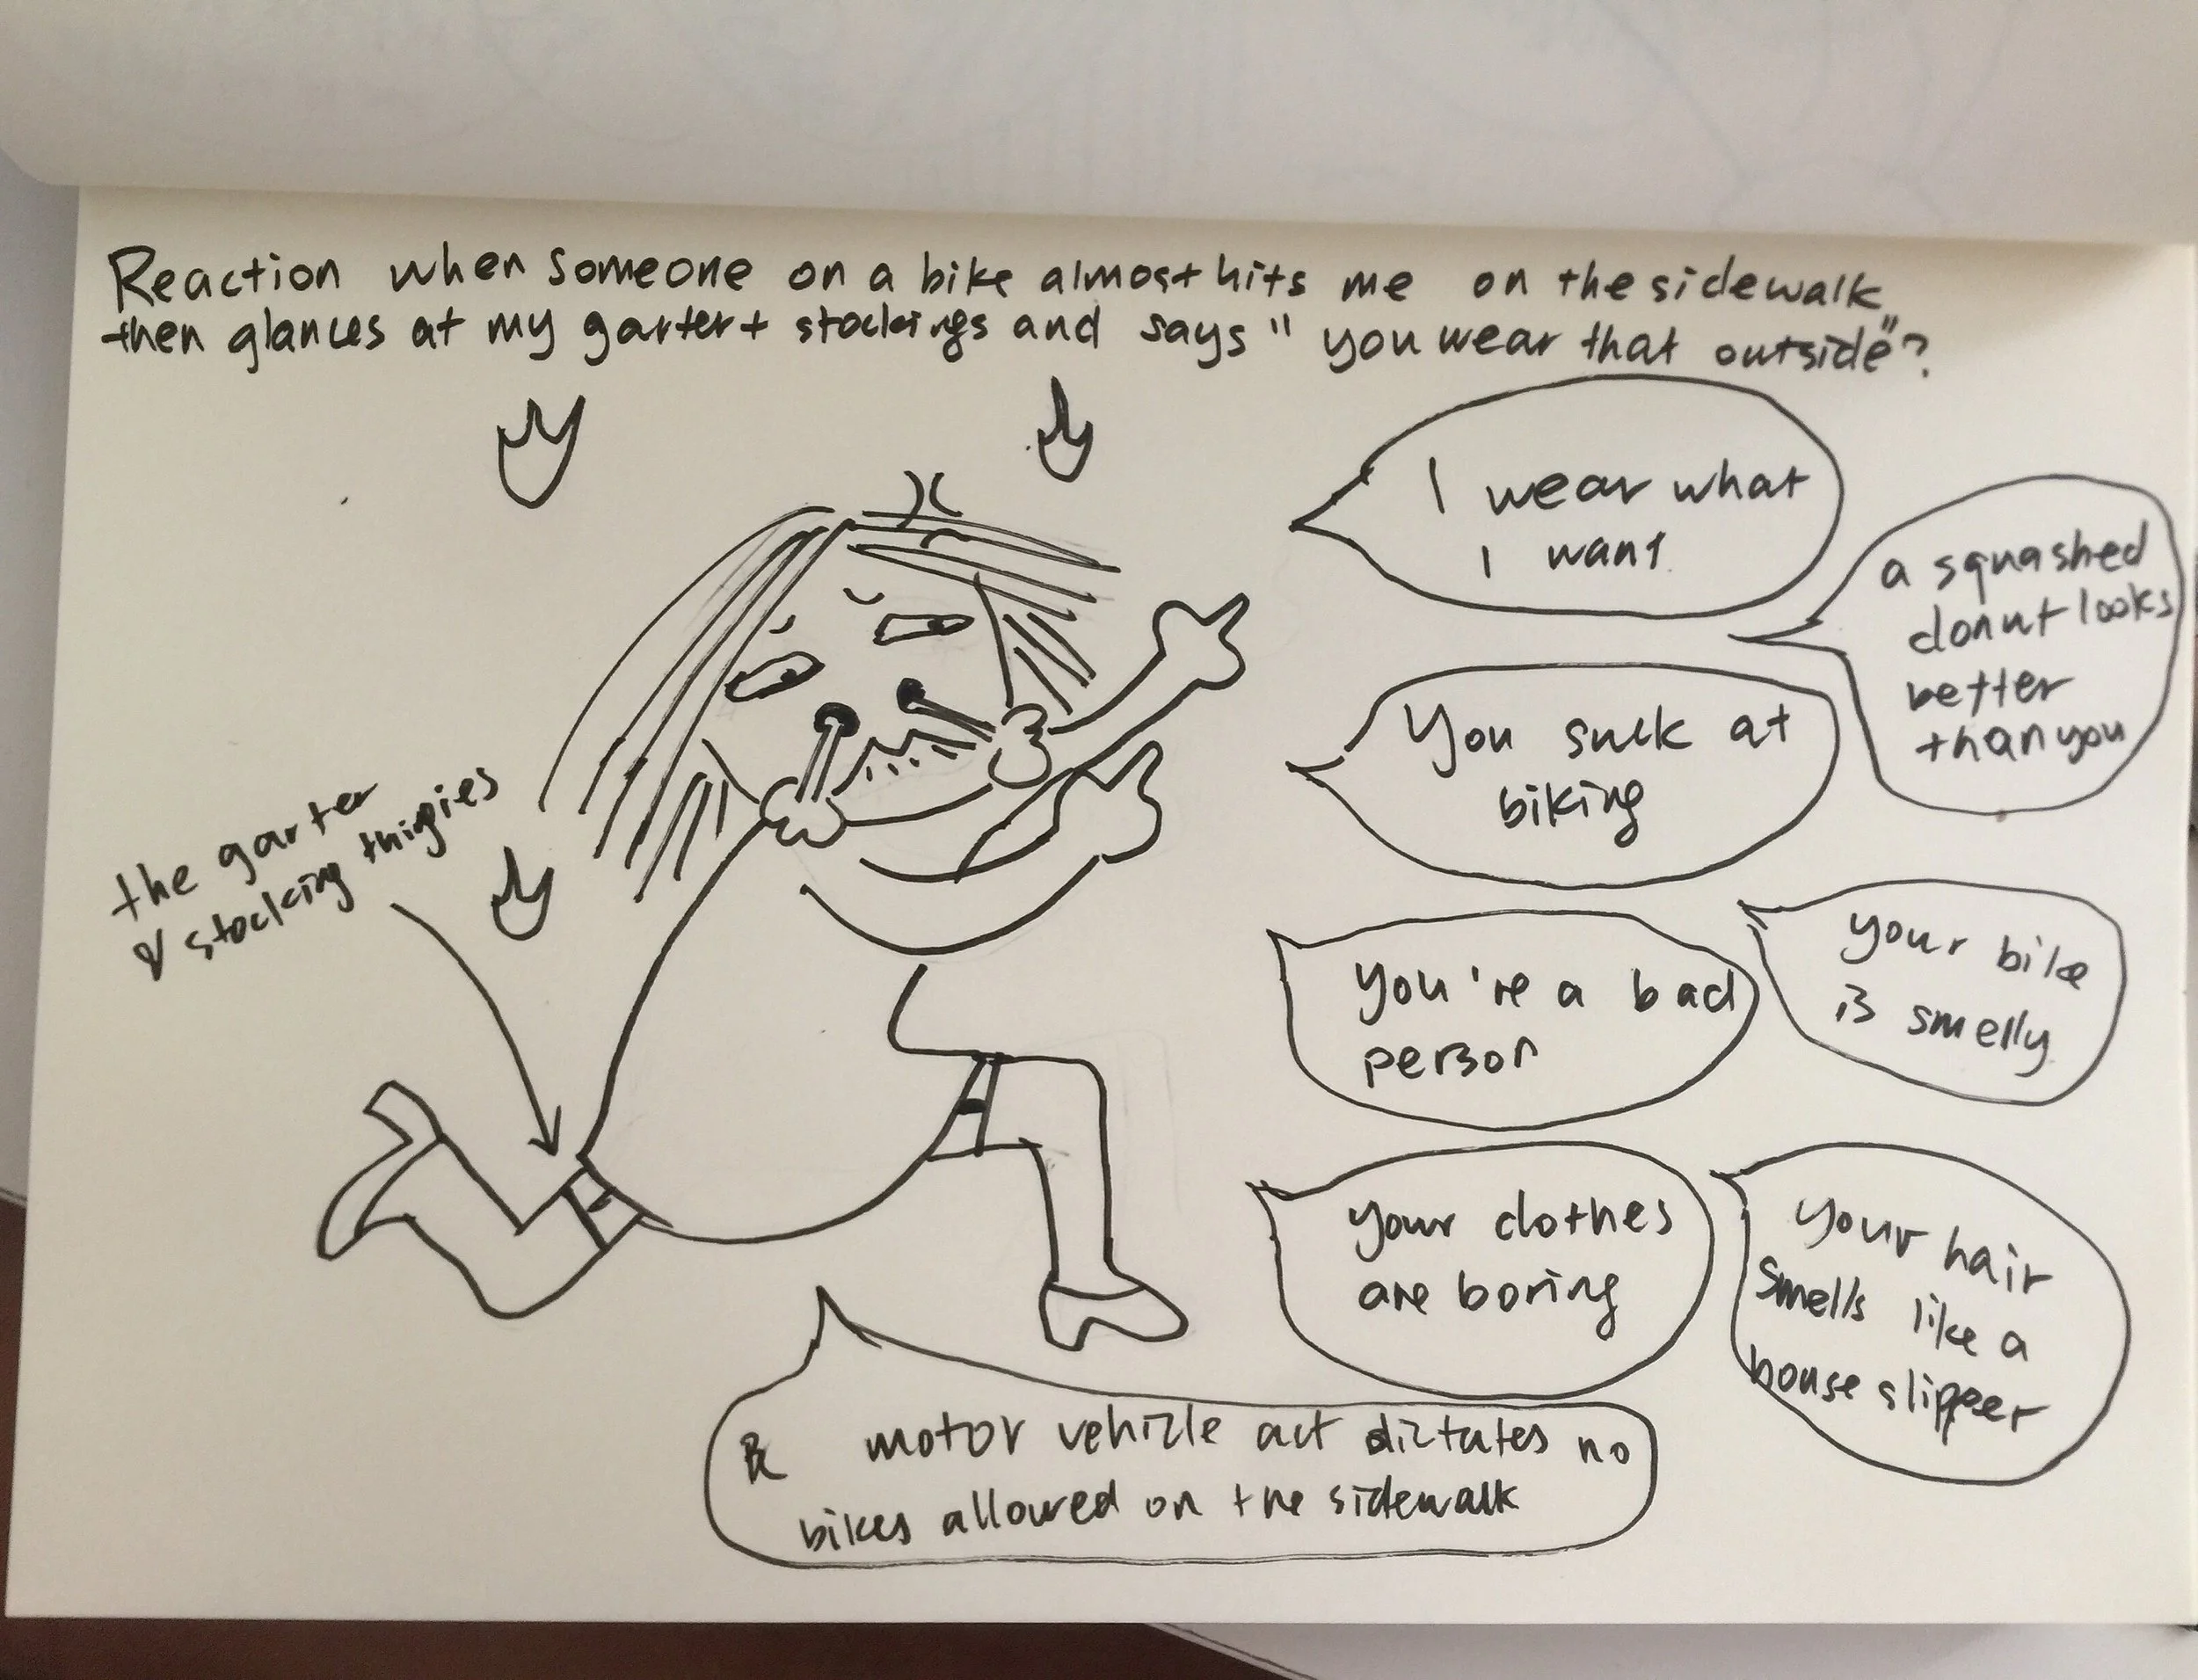 Reaction when someone on a bike almost hits me on the sidewalk
then glances at my garter + stockings and says "you wear that outside"?
I wear what
I want
a squashed
donut looks
better
than you
You suck at
biking
the garter
& stocking thigies
you're a bad
person
your bike
is smelly
your clothes
are boring
your hair
smells like a
house slipper
motor vehicle act dictates no
bikes allowed on the sidewalk